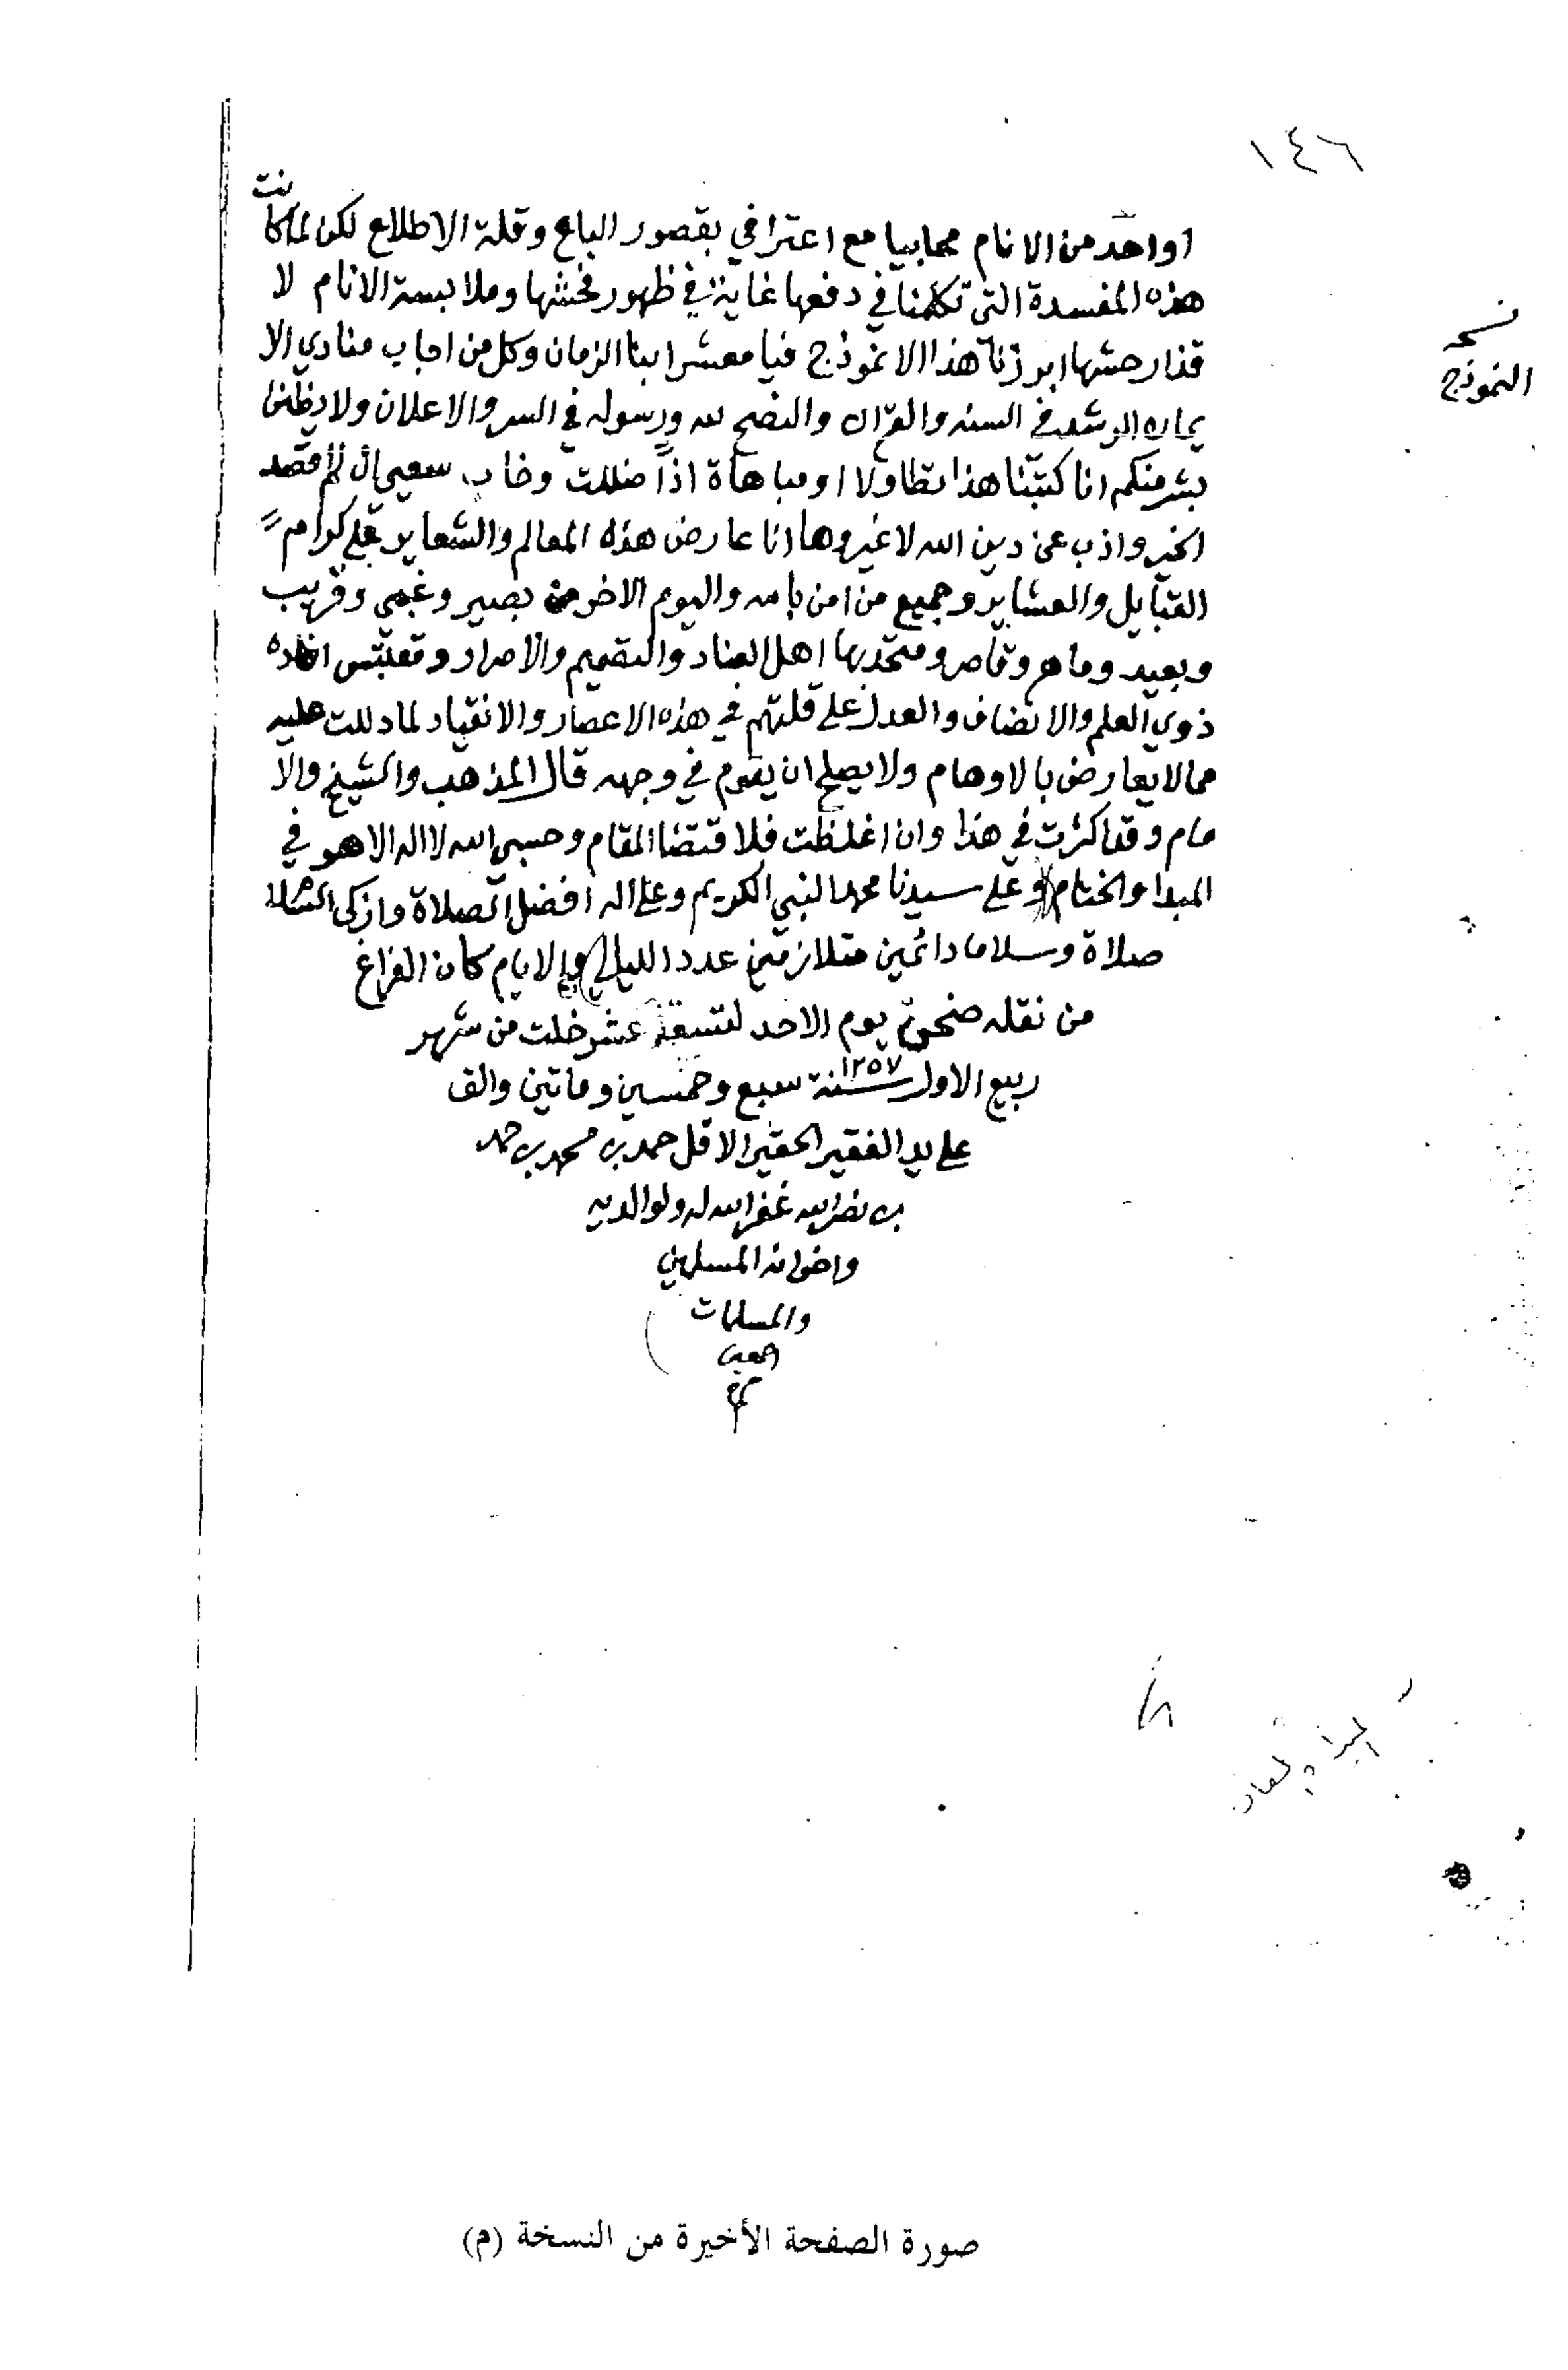 ١٤٦
او احد من الانام محابيا مع اعترافي بقصور الباع وقلة الاطلاع لكن لما كانت
هذه المفسدة التي تكلمنا في دفعها غاية في ظهور فحشها وملابسة الانام لا
نسخه
النموذج
قذار حشها ابرزنا هذا الانموذج فيا معشر ابنا الزمان وكل من اجاب منادي الا
يمان الرشد في السنه والقرآن والنصح لله ورسوله في السر والاعلان ولا يظن
بشر منكم انا كتبنا هذا تطاولا او مباهاة اذاً ضللت وخاب سعيي ان لم اقصد
الخير واذب عن دين الله لا غير وها انا عارض هذه المعالم والشعاير على كرام
القبايل والعشاير وجميع من امن بالله واليوم الاخر من بصير وغبي وقريب
وبعيد وماهر وقاصر ومتحد بها اهل العناد والتصميم والاصرار ومقتبس افاده
ذوي العلم والانصاف والعدل على قلتهم في هذه الاعصار والانقياد لما دللت عليه
مما لا يعارض بالاوهام ولا يصلح ان يقوم في وجهه قال المذهب والشيخ والا
مام وقد اكثرت في هذا وان اغلظت فلاقتضا المقام وحسبي الله لا اله الا هو في
المبدا والختام وعلى سيدنا محمد النبي الكريم وعلى اله افضل الصلاة وازكى السلام
صلاة وسلاما دائمين متلازمين عدد الليالي والايام كان الفراغ
من نقله ضحوة يوم الاحد لتسعة عشر خلت من شهر
ربيع الاول سنة ١٢٥٧ سبع وخمسين وماتين والف
على يد الفقير الحقير الاقل حمد بن محمد بن حمد
بن نصر الله غفر الله له ولوالديه
واخوانه المسلمين
والمسلمات
امين
م
صورة الصفحة الأخيرة من النسخة (م)